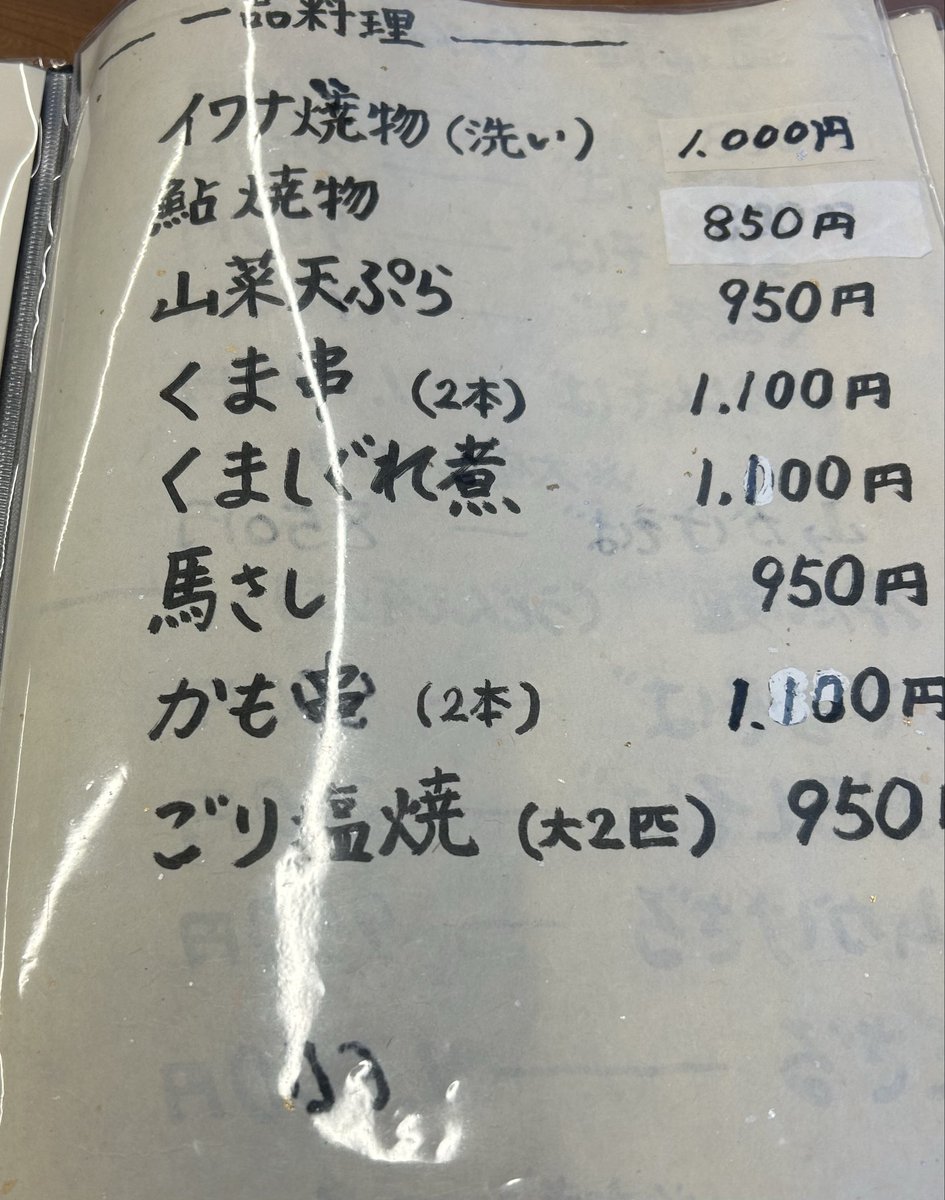 一品料理
イワナ焼物(洗い) 1.000円
鮎焼物 850円
山菜天ぷら 950円
くま串 (2本) 1.100円
くましぐれ煮 1.100円
馬さし 950円
かも串 (2本) 1.100円
ごり塩焼 (大2匹) 950